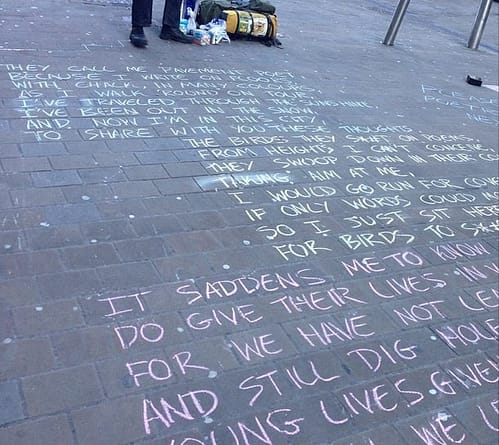 THEY CALL ME PAVEMENT POET
BECAUSE I WRITE ON GROUND
WITH CHALK, IN MANY COLOURS
AS I WALK ROUND AND ROUND
I'VE TRAVELED THROUGH THE SUNSHINE,
I'VE BEEN OUT IN THE SNOW
AND NOW I'M IN THIS CITY
TO SHARE WITH YOU THESE THOUGHTS
THE BIRDS THEY S**T ON POEMS,
FROM HEIGHTS I CAN'T CONCEIVE
THEY SWOOP DOWN IN THEIR
TAKING AIM AT ME,
I WOULD GO RUN FOR
IF ONLY WORDS COULD
SO I JUST SIT HERE
FOR BIRDS TO S**
IT SADDENS ME TO KNOW
DO GIVE THEIR LIVES IN
FOR WE HAVE NOT
AND STILL DIG
YOUNG LIVES
WE